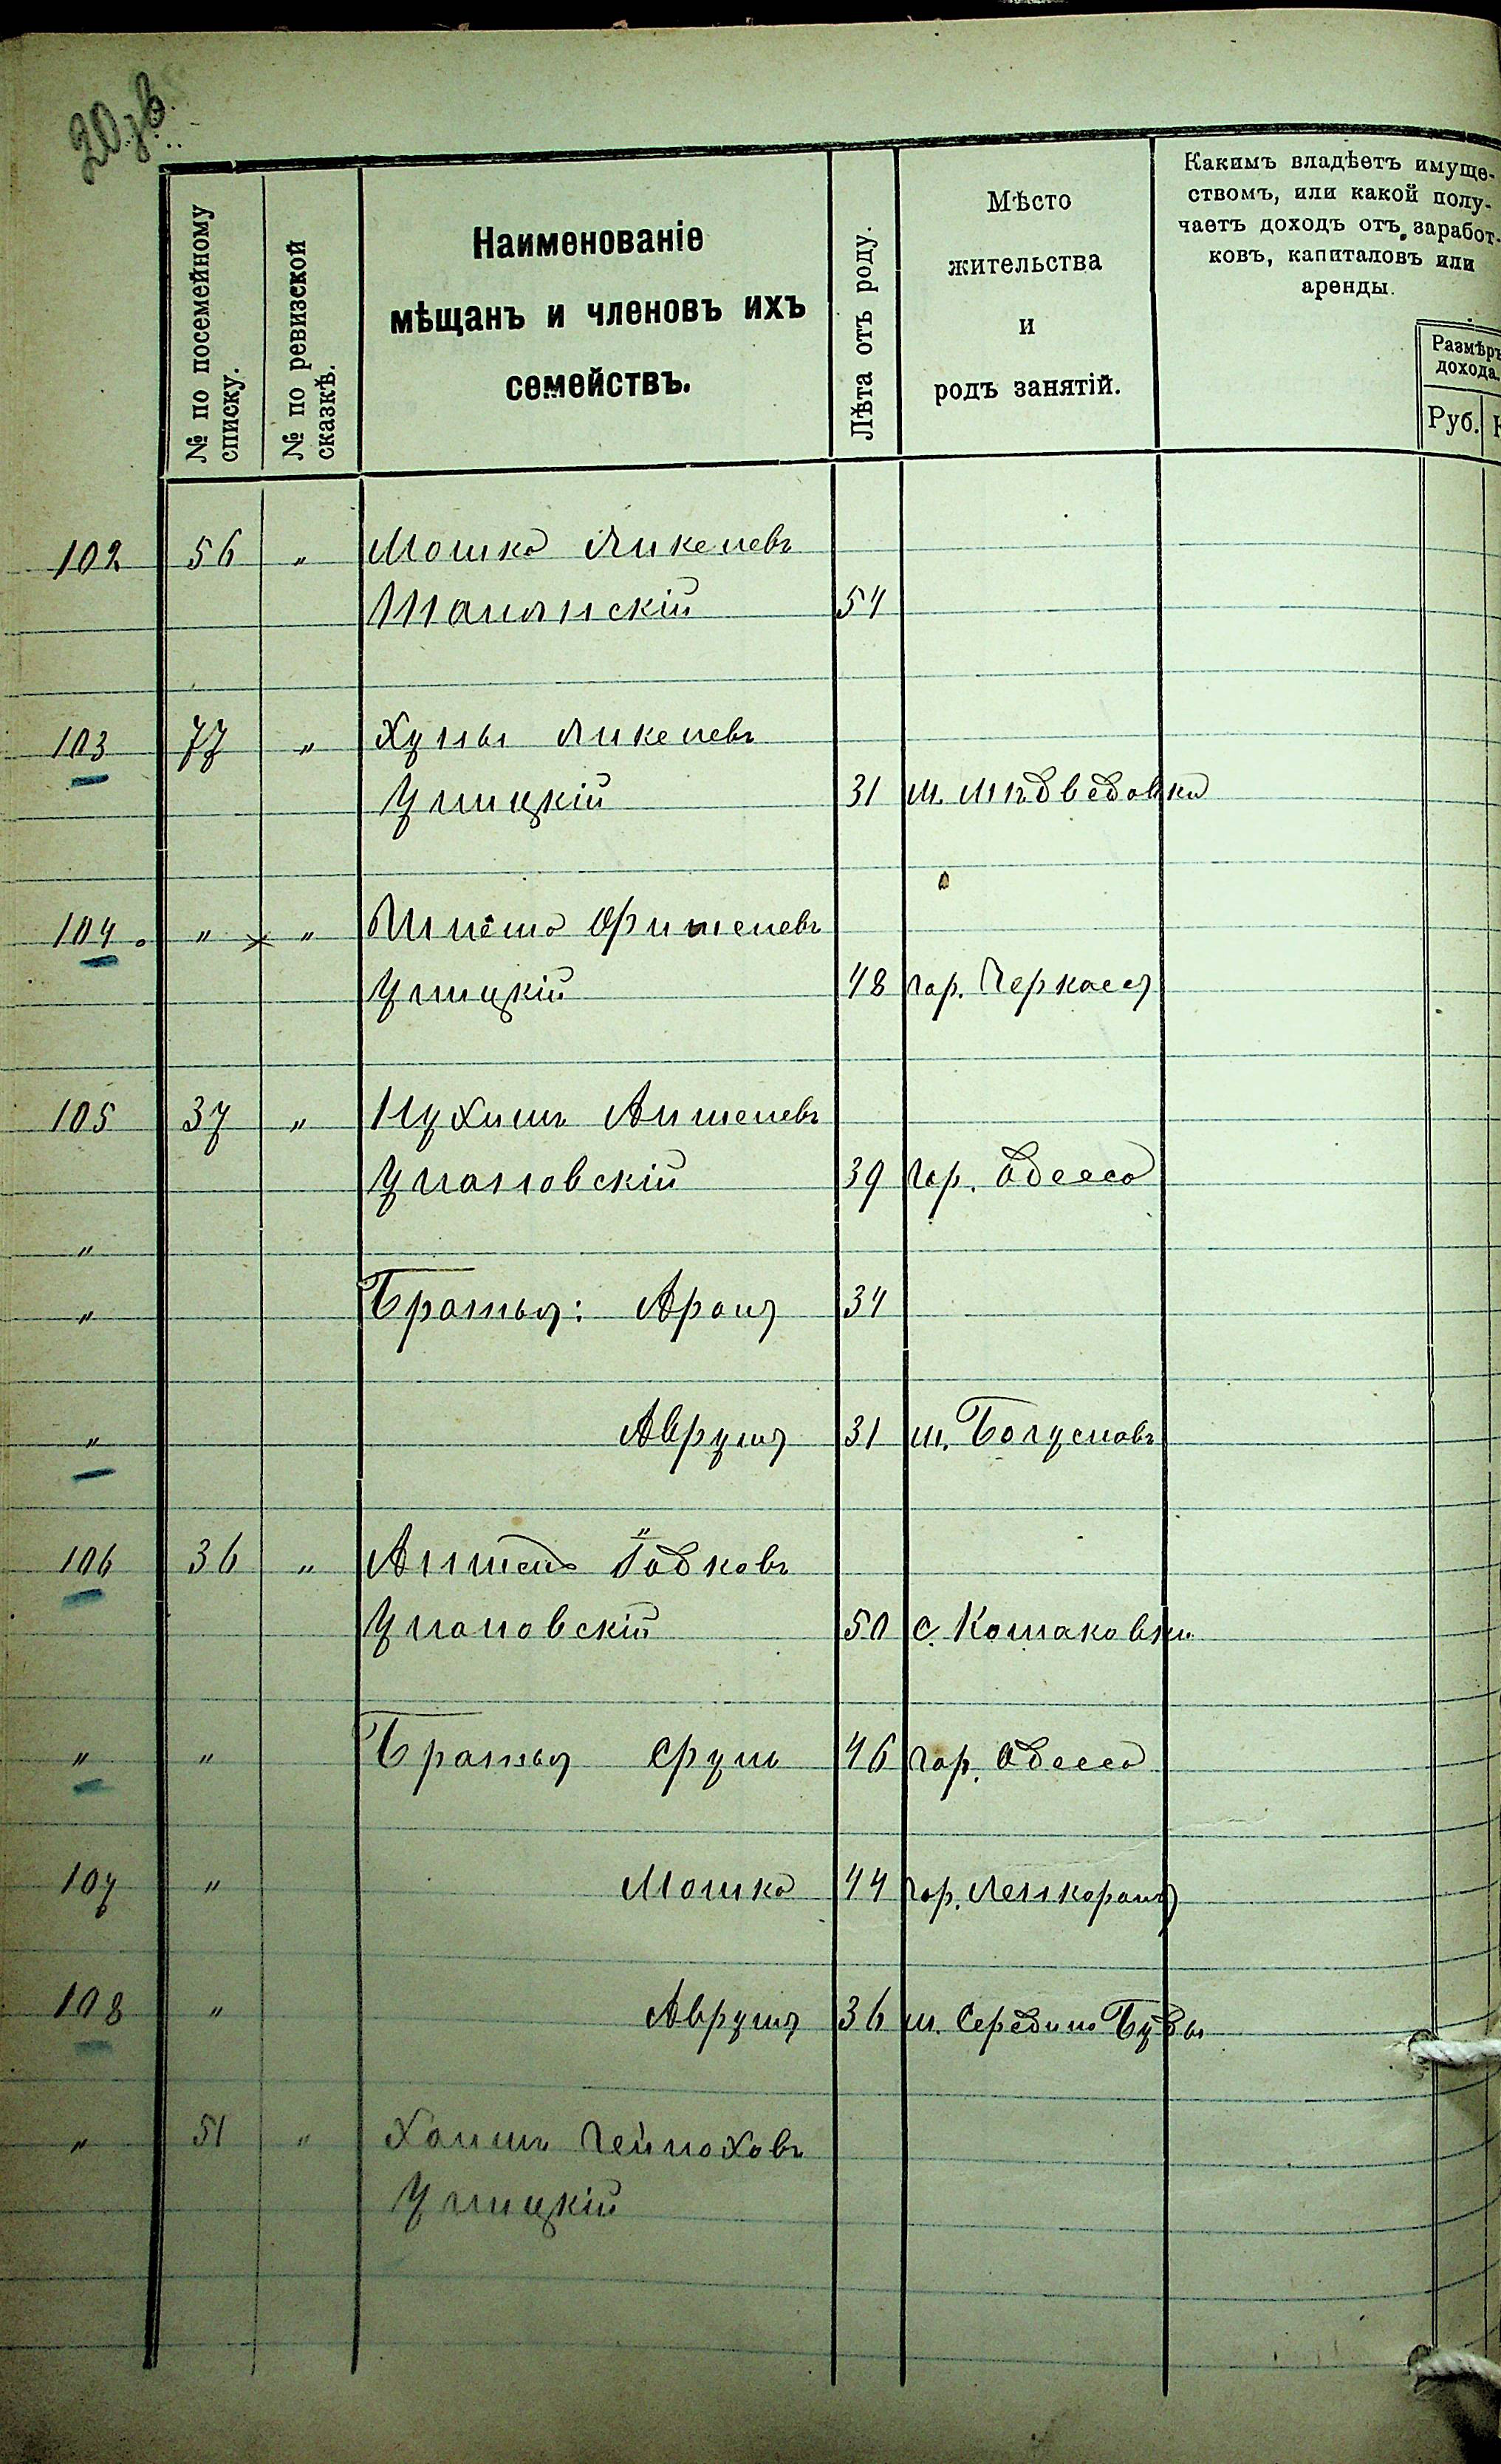 № по посемейному
списку.
№ по ревизской
сказкѣ.
Наименованіе
мѣщанъ и членовъ ихъ
семействъ.
Лѣта отъ роду.
Мѣсто
жительства
и
родъ занятій.
Какимъ владѣетъ имуще-
ствомъ, или какой полу-
чаетъ доходъ отъ заработ-
ковъ, капиталовъ или
аренды.
Размѣръ
дохода.
Руб.
102 56 " Мошко Янкелевъ
54
103 77 " Янкелевъ
Улицкій 31 м. Медведовки
104 " " Фишелевъ
Улицкій 48 гор. Черкассы
105 37 " Нухимъ Аншелевъ
Улановскій 39 гор. Одесса
"
" Братья: Аронъ 34
" Аврумъ 31 м. Богуславъ
106 36 " Аншель
Улановскій 50 с.
" " Братья Сруль 46 гор. Одесса
107 " Мошко 44 гор. Ленкорань
108 " Аврумъ 36 м. Середино Буды
" 51 " Хаимъ
Улицкій